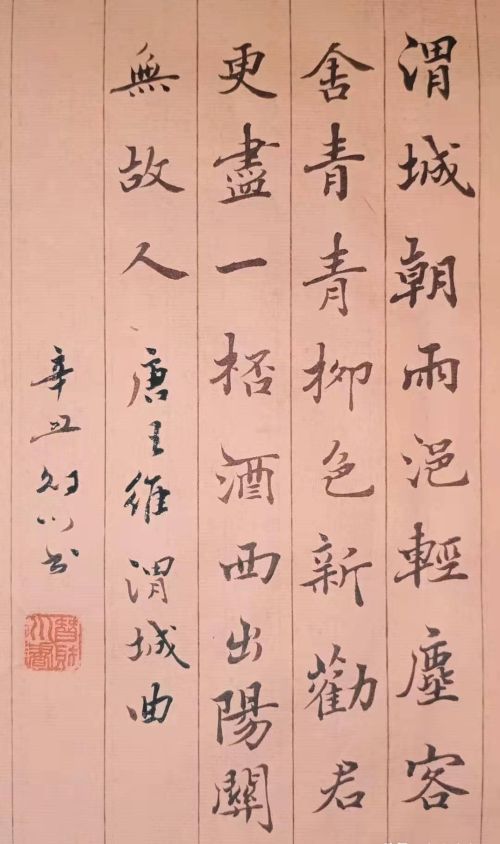 渭城朝雨浥輕塵客
舍青青柳色新勸君
更盡一桮酒西出陽關
無故人 唐王維渭城曲
辛丑川书